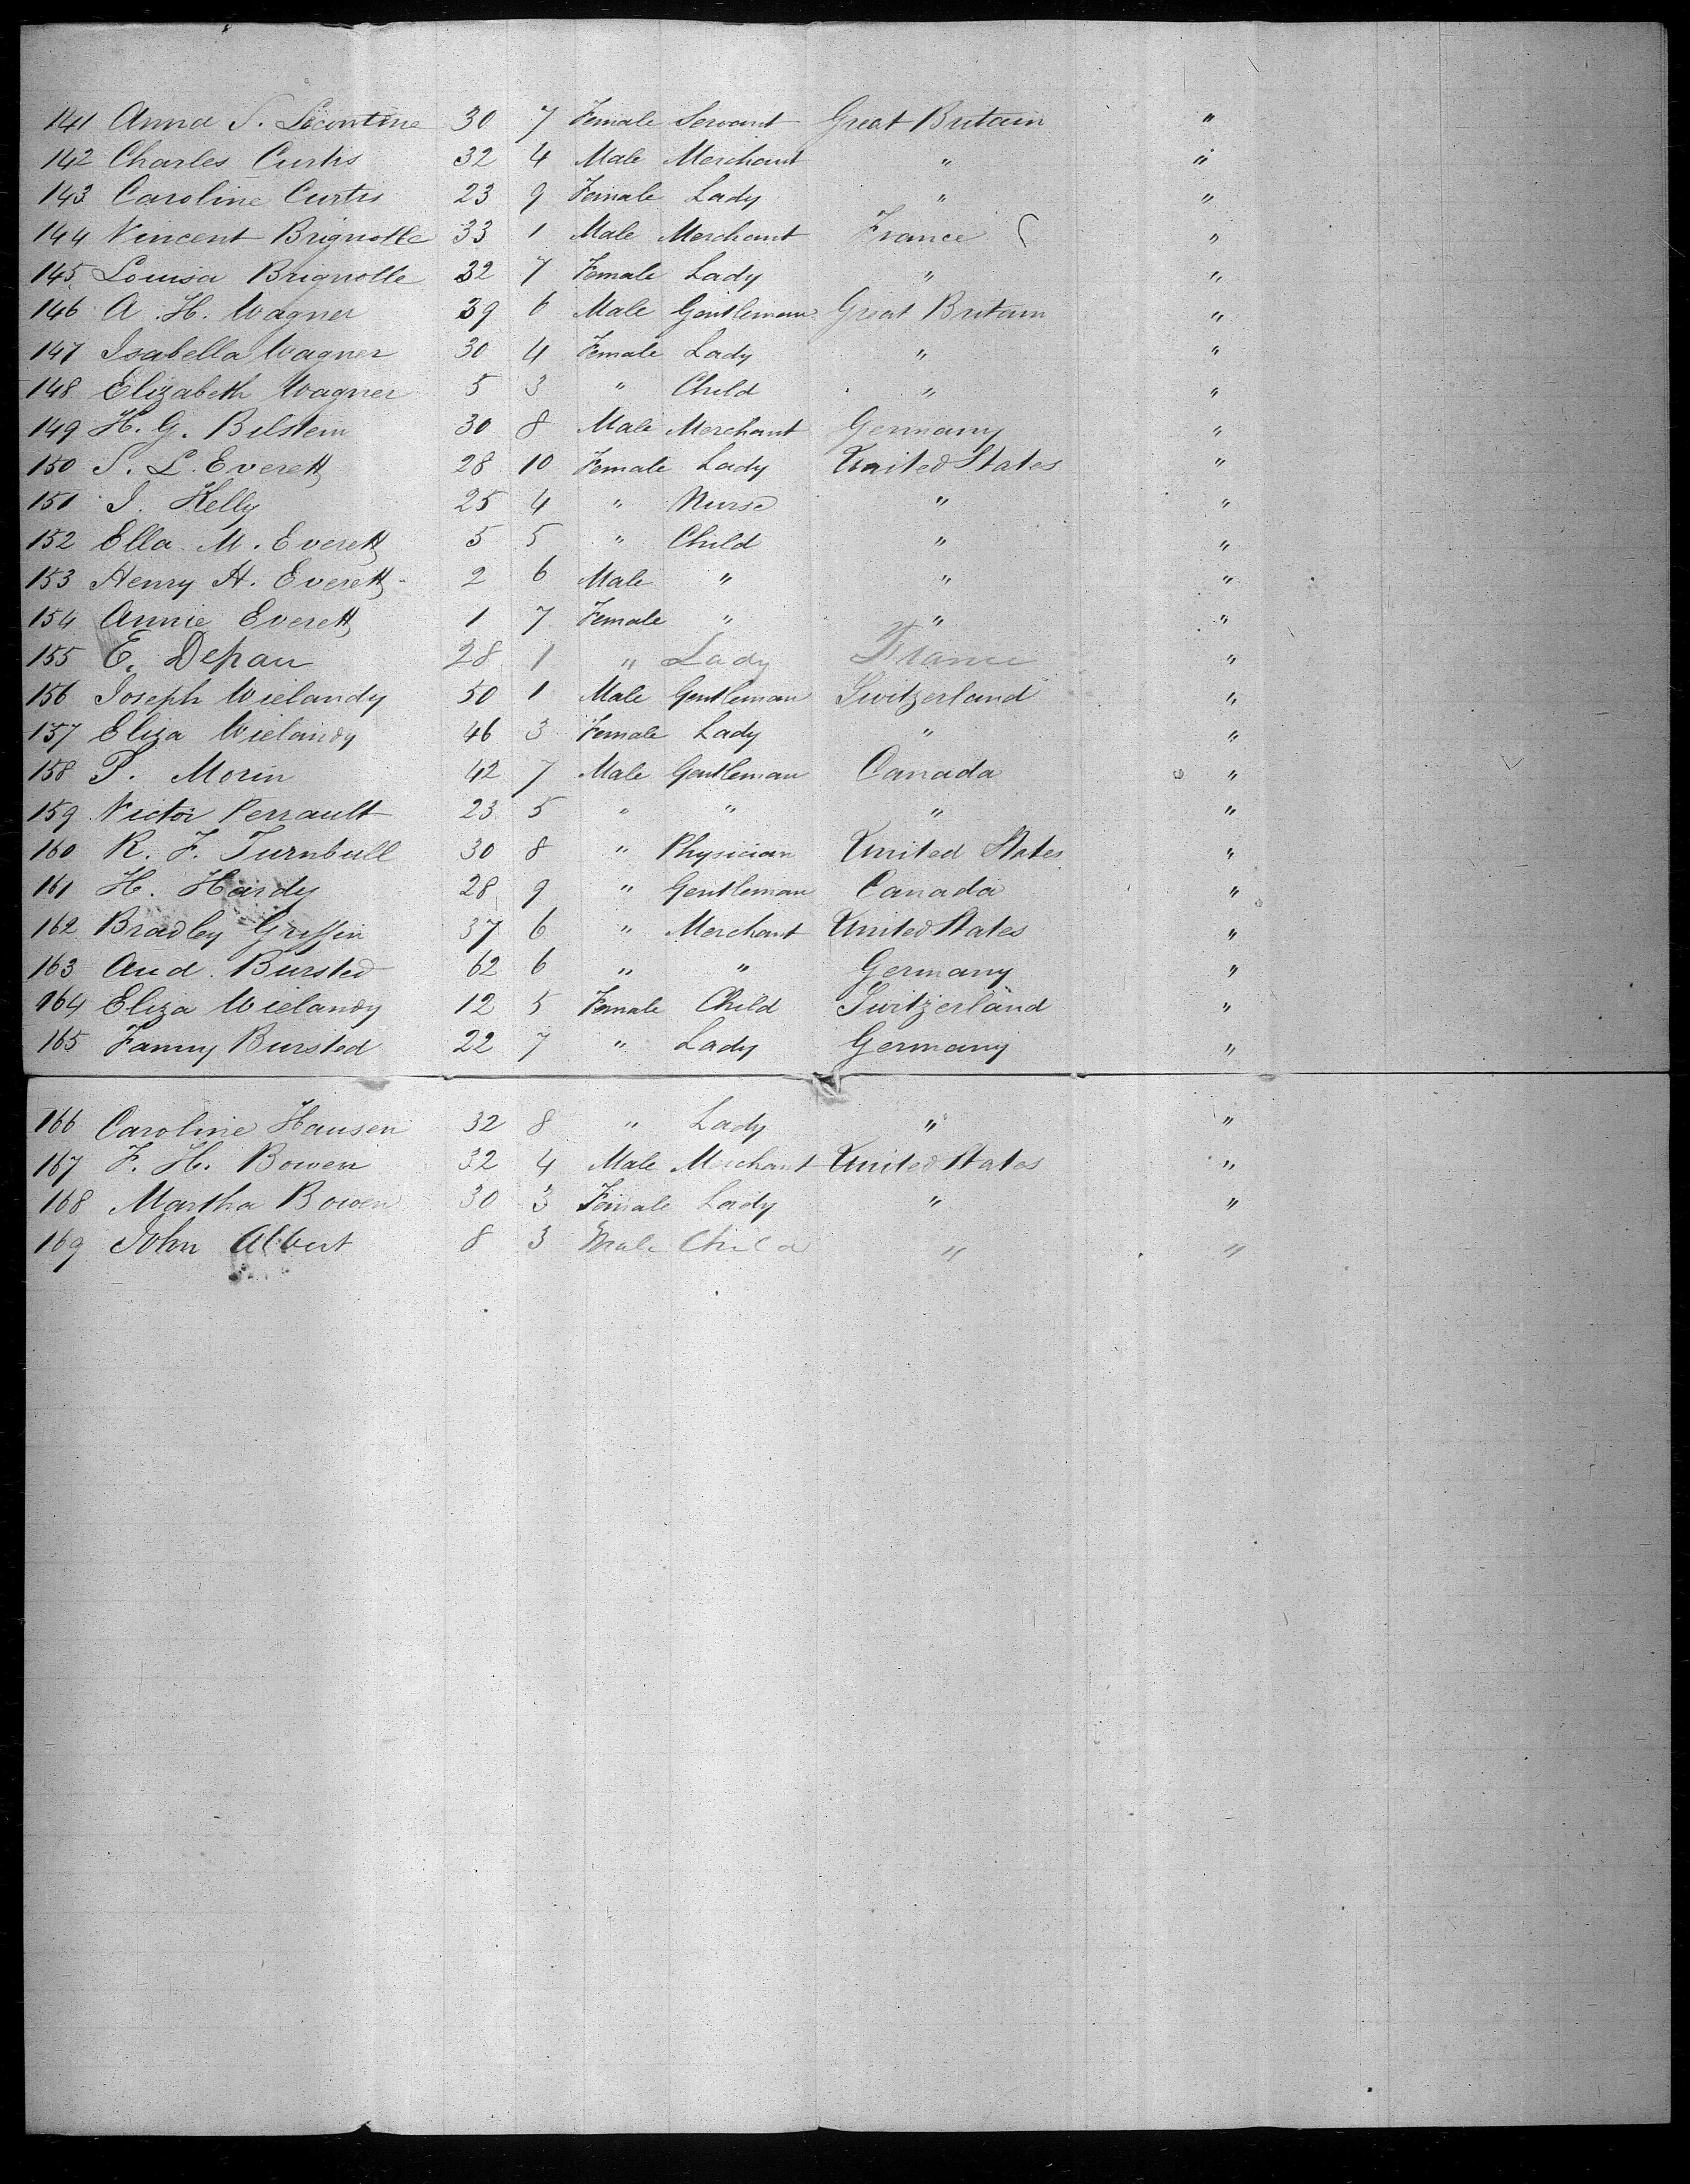 141 Anna S. Lecontine 30 7 Female Servant Great Britain "
142 Charles Curtis 32 4 Male Merchant " "
143 Caroline Curtis 23 9 Female Lady " "
144 Vincent Brignolle 33 1 Male Merchant France "
145 Louisa Brignolle 32 7 Female Lady " "
146 A. H. Wagner 39 6 Male Gentleman Great Britain "
147 Isabella Wagner 30 4 Female Lady " "
148 Elizabeth Wagner 5 3 " Child " "
149 H. G. Bilstein 30 8 Male Merchant Germany "
150 S. L. Everett 28 10 Female Lady United States "
151 J. Kelly 25 4 " Nurse " "
152 Ella M. Everett 5 5 " Child " "
153 Henry H. Everett 2 6 Male " " "
154 Annie Everett 1 7 Female " " "
155 E. Depau 28 1 " Lady France "
156 Joseph Wielandy 50 1 Male Gentleman Switzerland "
157 Eliza Wielandy 46 3 Female Lady " "
158 P. Morin 42 7 Male Gentleman Canada "
159 Victor Perrault 23 5 " " " "
160 R. F. Turnbull 30 8 " Physician United States "
161 H. Hardy 28 9 " Gentleman Canada "
162 Bradley Griffin 37 6 " Merchant United States "
163 Aud. Bursted 62 6 " " Germany "
164 Eliza Wielandy 12 5 Female Child Switzerland "
165 Fanny Bursted 22 7 " Lady Germany "
166 Caroline Hausen 32 8 " Lady " "
167 F. H. Bowen 32 4 Male Merchant United States "
168 Martha Bowen 30 3 Female Lady " "
169 John Albert 8 3 Male Child " "